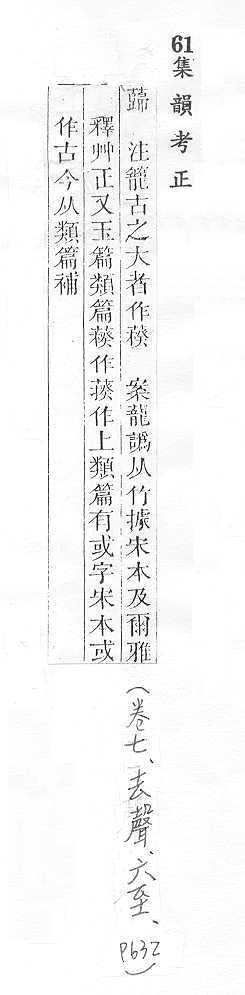 61集韻考正
蘬　注籠古之大者作　案龍譌从竹據宋本及爾雅
釋艸正又玉篇類篇作作上類篇有或字宋本或
作古今从類篇補
(卷七、去聲、六至、P632)